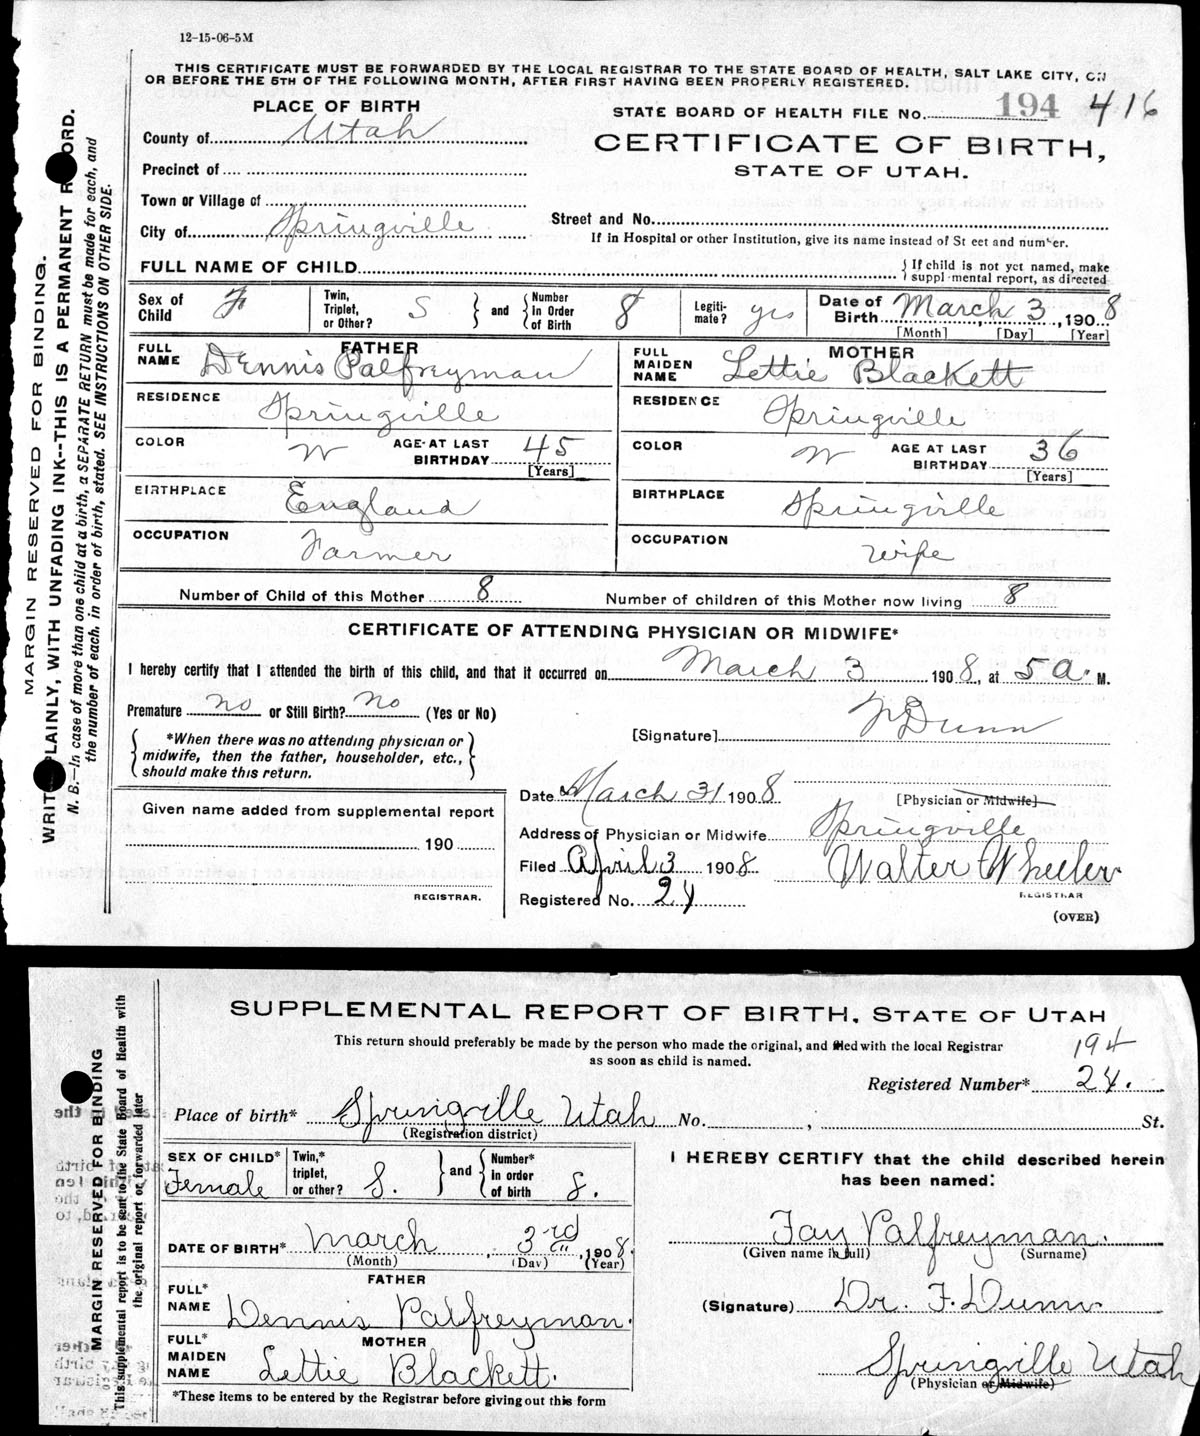 12-15-06-5M
THIS CERTIFICATE MUST BE FORWARDED BY THE LOCAL REGISTRAR TO THE STATE BOARD OF HEALTH, SALT LAKE CITY, ON
OR BEFORE THE 5TH OF THE FOLLOWING MONTH, AFTER FIRST HAVING BEEN PROPERLY REGISTERED.
MARGIN RESERVED FOR BINDING.
WRITE PLAINLY, WITH UNFADING INK--THIS IS A PERMANENT RECORD.
N. B.—In case of more than one child at a birth, a SEPARATE RETURN must be made for each, and
the number of each, in order of birth, stated. SEE INSTRUCTIONS ON OTHER SIDE.
PLACE OF BIRTH
County of Utah
Precinct of
Town or Village of
City of Springville
STATE BOARD OF HEALTH FILE No. 194 416
CERTIFICATE OF BIRTH,
STATE OF UTAH.
Street and No.
If in Hospital or other Institution, give its name instead of Street and number.
FULL NAME OF CHILD
If child is not yet named, make
supplemental report, as directed
Sex of Child F Twin, Triplet, or Other? S and Number In Order of Birth 8 Legitimate? yes Date of Birth March 3, 1908
[Month] [Day] [Year]
FATHER
FULL NAME Dennis Palfreyman
RESIDENCE Springville
COLOR W AGE AT LAST BIRTHDAY 45
[Years]
BIRTHPLACE England
OCCUPATION Farmer
MOTHER
FULL MAIDEN NAME Lettie Blackett
RESIDENCE Springville
COLOR W AGE AT LAST BIRTHDAY 36
[Years]
BIRTHPLACE Springville
OCCUPATION wife
Number of Child of this Mother 8 Number of children of this Mother now living 8
CERTIFICATE OF ATTENDING PHYSICIAN OR MIDWIFE*
I hereby certify that I attended the birth of this child, and that it occurred on March 3 1908, at 5 a. M.
Premature no or Still Birth? no (Yes or No)
*When there was no attending physician or
midwife, then the father, householder, etc.,
should make this return.
[Signature] Dunn
Date March 31 1908
[Physician or Midwife]
Address of Physician or Midwife Springville
Filed April 3 1908 Walter Wheeler
REGISTRAR
Registered No. 24
(OVER)
Given name added from supplemental report
190
REGISTRAR.
SUPPLEMENTAL REPORT OF BIRTH, STATE OF UTAH
This return should preferably be made by the person who made the original, and filed with the local Registrar
as soon as child is named.
194
Registered Number* 24.
MARGIN RESERVED FOR BINDING
This supplemental report is to be sent to the State Board of Health with
the original report or forwarded later
Place of birth* Springville Utah No. , St.
(Registration district)
SEX OF CHILD* Female Twin,* triplet, or other? S. and Number* in order of birth 8.
DATE OF BIRTH* March, 3rd, 1908.
(Month) (Day) (Year)
FATHER
FULL* NAME Dennis Palfreyman.
MOTHER
FULL* MAIDEN NAME Lettie Blackett.
*These items to be entered by the Registrar before giving out this form
I HEREBY CERTIFY that the child described herein
has been named:
Fay Palfreyman.
(Given name in full) (Surname)
(Signature) Dr. F. Dunn
Springville Utah
(Physician or Midwife)